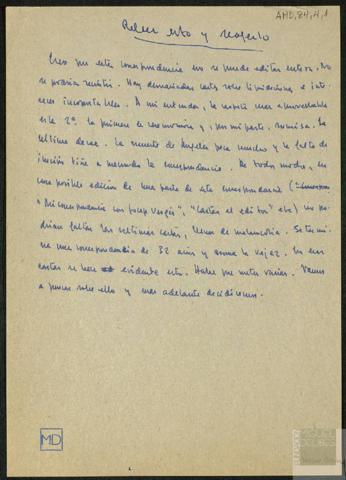 AMD,84,4,1
Releer esto y rehacerlo
Creo que esta correspondencia no se puede editar entera. No
se podría resistir. Hay demasiadas cartas sobre liquidaciones, e inte-
reses incontables. A mi entender, la mitad más aprovechable
es la 2ª. La primera es ceremoniosa y, por mi parte, sumisa. La
última decae. La muerte de Ángeles pesa mucho y la falta de
ilusión tiñe a menudo la correspondencia. De todos modos, en
una posible edición de una parte de esta correspondencia
"Mi correspondencia con Josep Vergés", "Cartas al editor" etc) no po-
drían faltar las últimas cartas, llenas de melancolía. Se termi-
na una correspondencia de 32 años y asoma la vejez. En esas
cartas se hace evidente esto. Habrá que meter varias. Vamos
a pensar sobre ello y más adelante decidiremos.
MD
FUNDACIÓN MIGUEL DELIBES